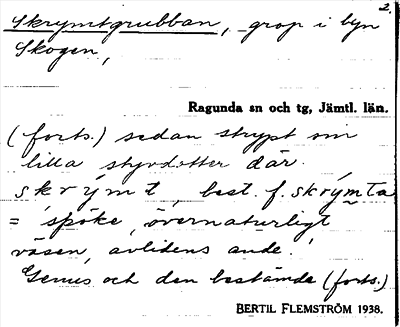 2.
Skrymtgrubban, grop i byn
Skogen,
Ragunda sn och tg, Jämtl. län.
(forts.) sedan strypt sin
lilla styvdotter där.
skrymt, best. f. skrymta
= 'spöke, övernaturligt
väsen, avlidens ande.'
Genus och den bestämda (forts.)
BERTIL FLEMSTRÖM 1938.